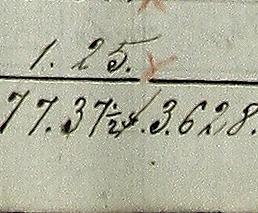 1.25.
77.37½ 3.628.